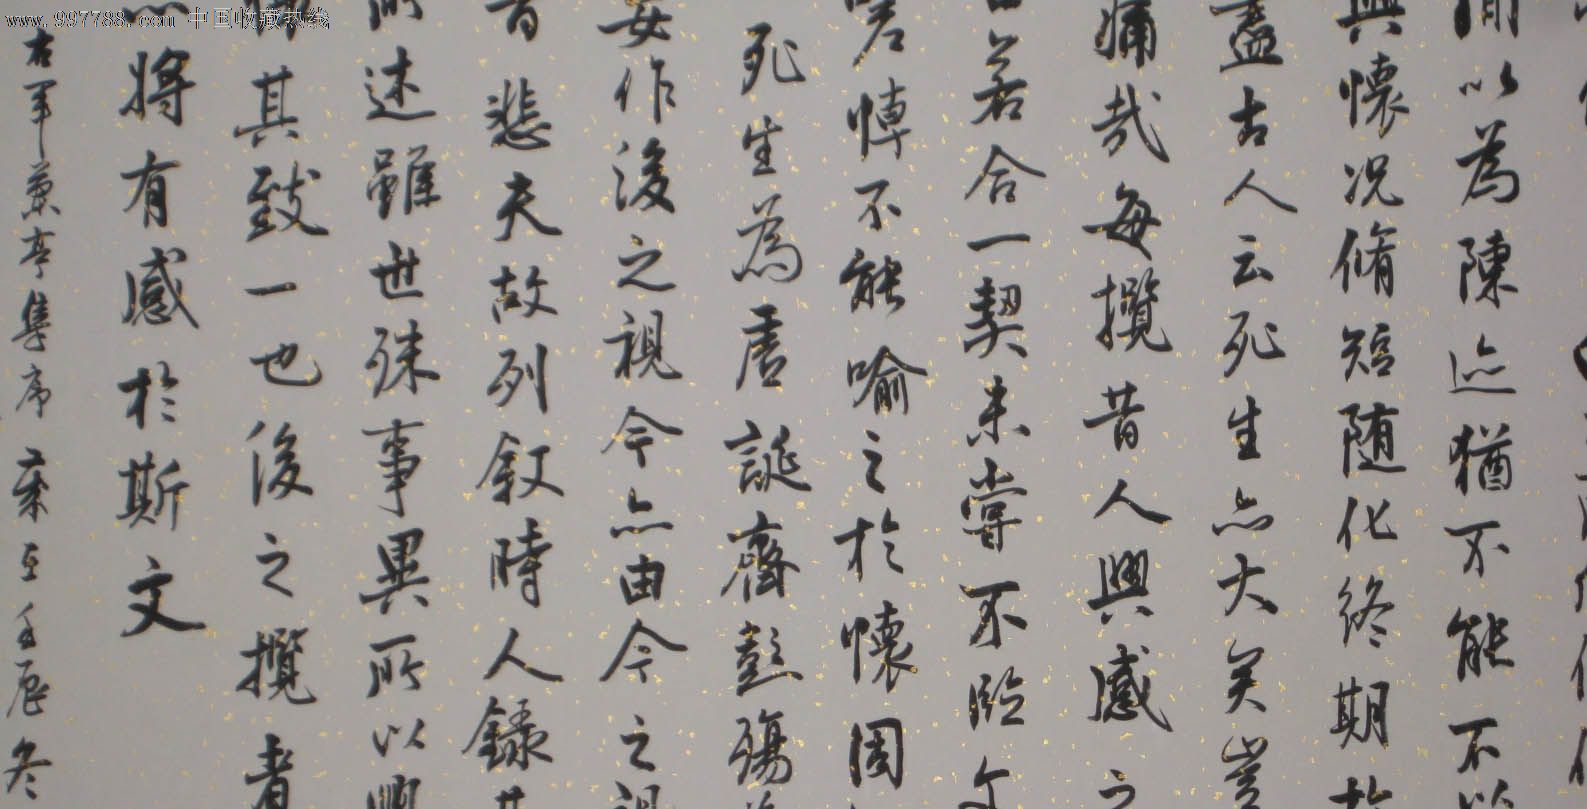 www.997788.com 中国收藏热线
以為陳迹猶不能不以
興懷况脩短随化終期於
盡古人云死生亦大矣豈
痛哉每攬昔人興感之
若合一契未嘗不臨文
嗟悼不能喻之於懷固
死生為虛誕齊彭殤為
妄作後之視今亦由今之視
昔悲夫故列叙時人録其
所述雖世殊事異所以興
其致一也後之攬者
亦將有感於斯文
右軍蘭亭集序 壬辰冬